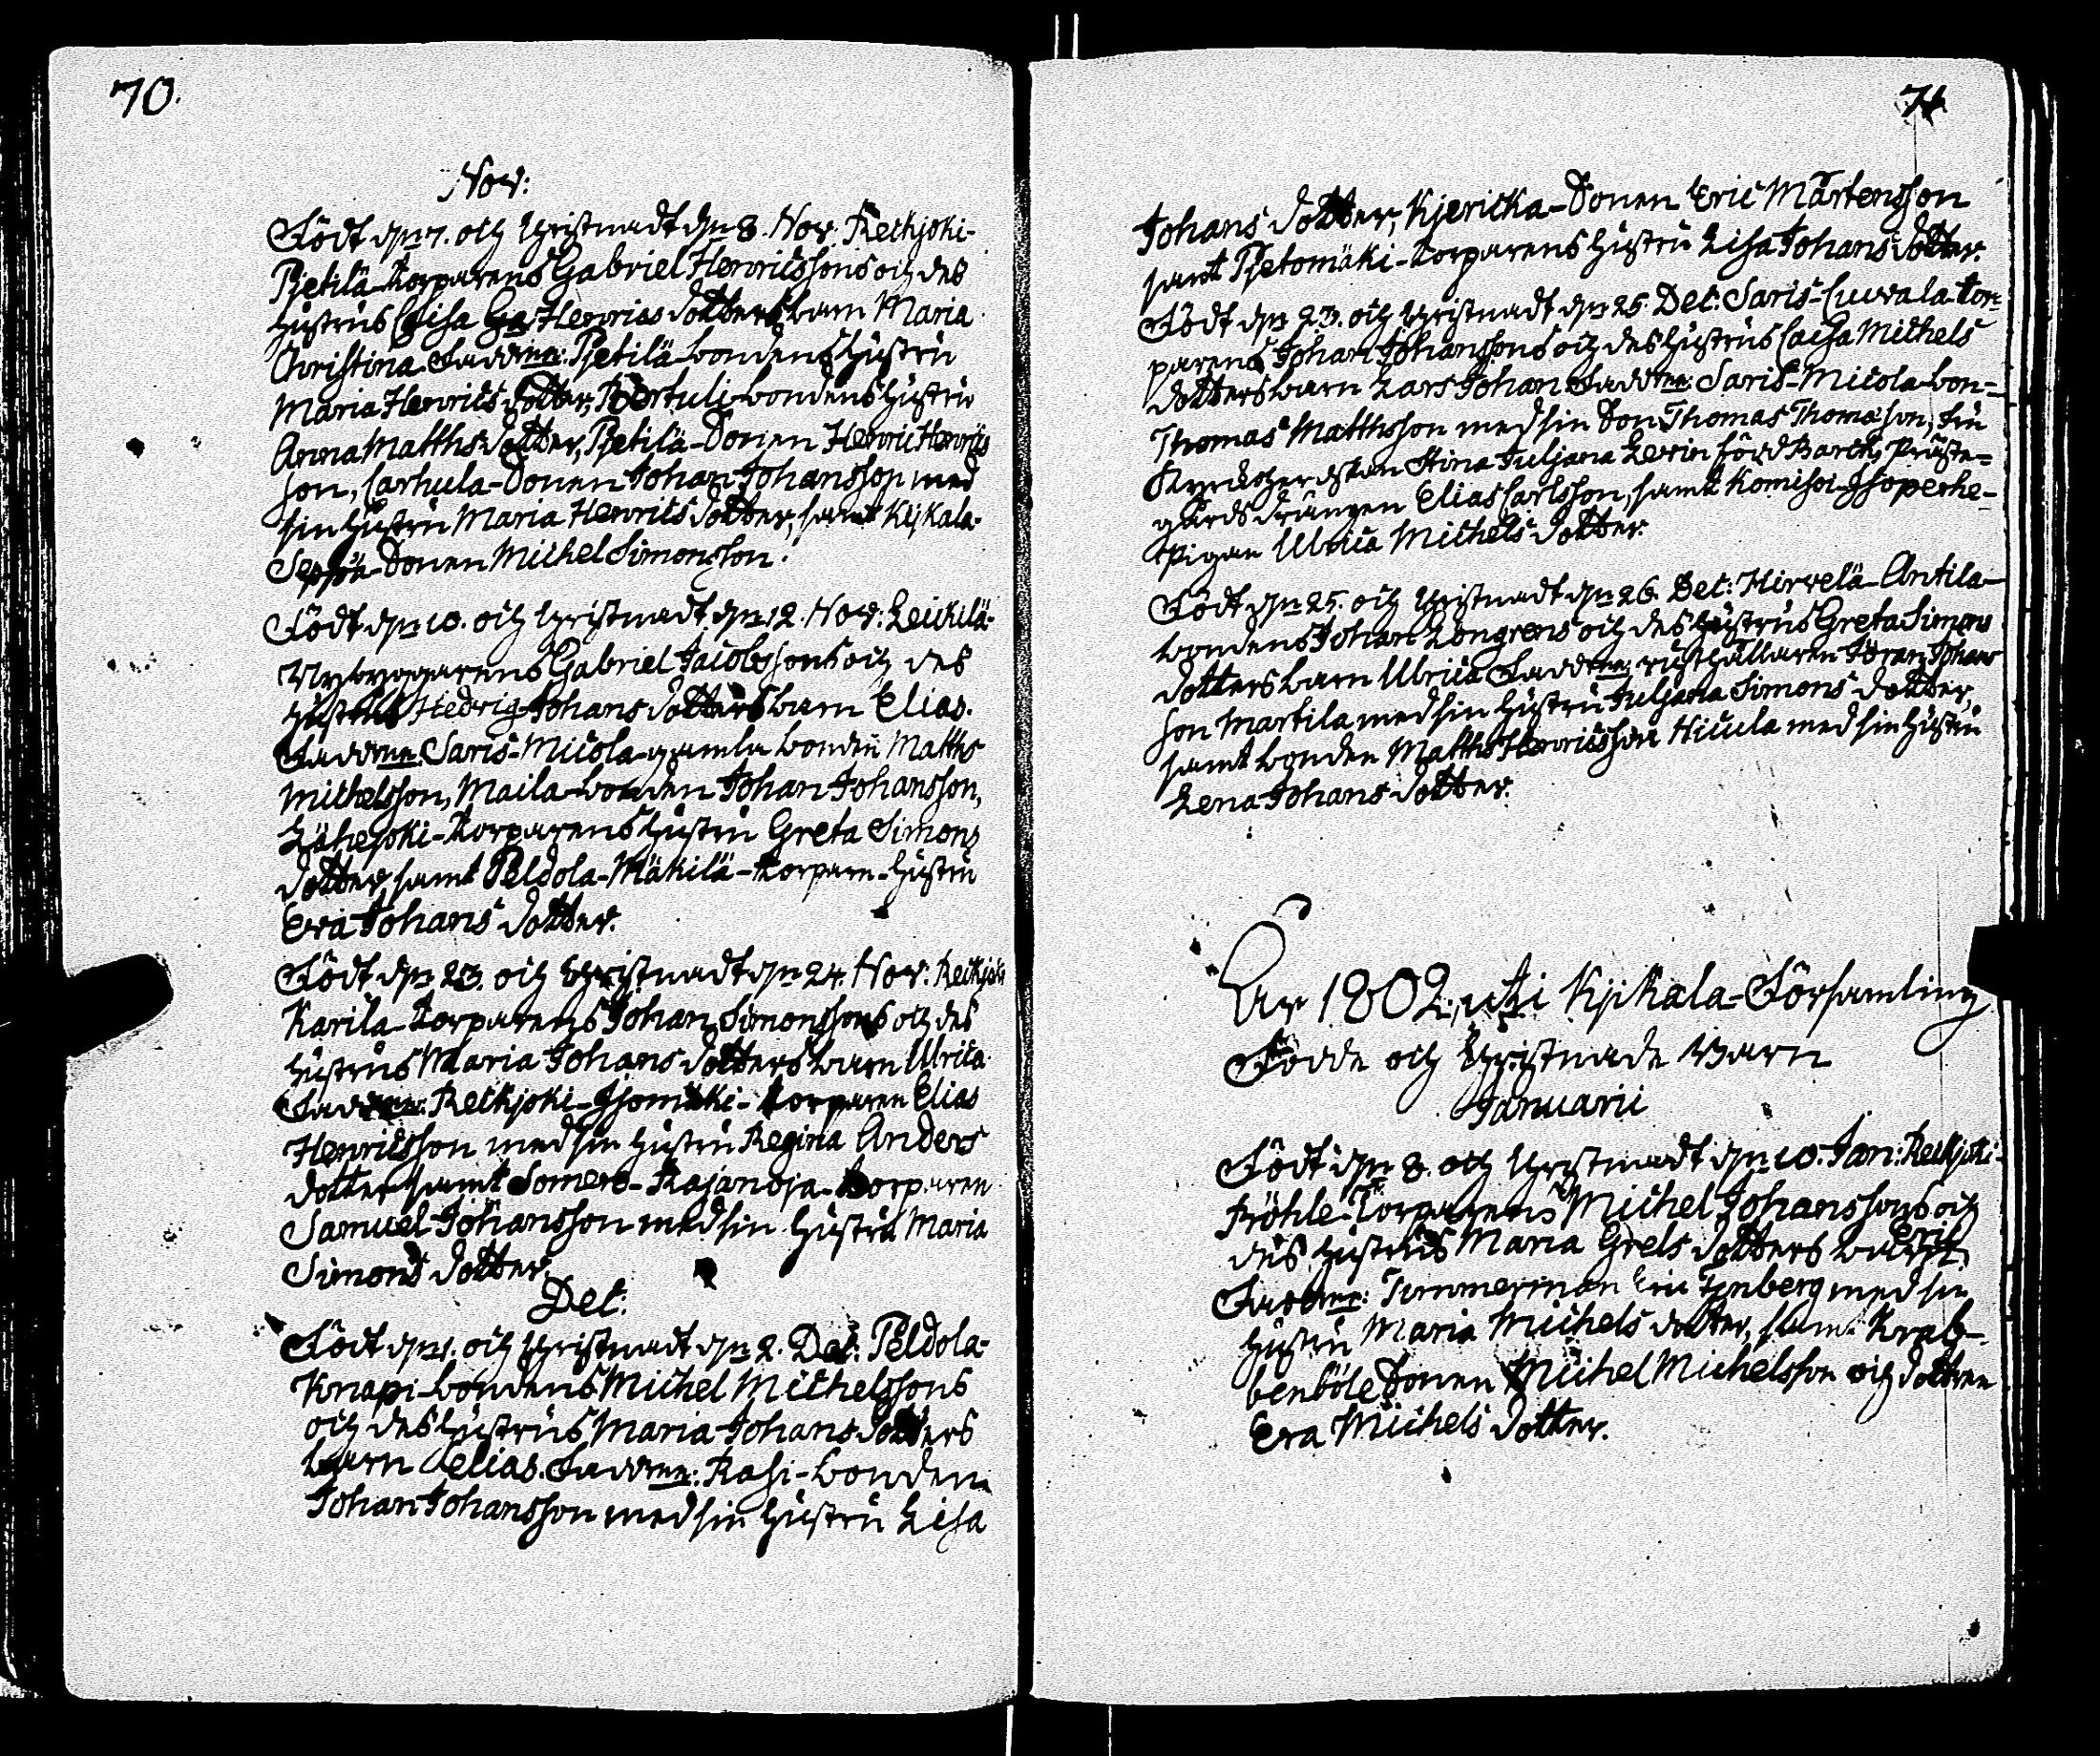 70.
Nov:
Födt d. 7. och Christnadt d. 8. Nov: Reckjoki-
Pjetilä-Torparens Gabriel Henricssons och des
hustrus Caisa Henrics dotters barn Maria
Christina. Faddrar: Pjetilä-bondens hustru
Maria Henrics dotter, Pörtuli-bondens hustru
Anna Matths dotter, Pjetilä-Sonen Henric Henrics
son, Carhula-Sonen Johan Johansson med
sin hustru Maria Henrics dotter, samt Kijkala-
Seppä-Sonen Michel Simonsson.
Födt d. 10. och Christnadt d. 12. Nov: Leickilä-
Nybyggarens Gabriel Jacobssons och des
hustrus Hedvig Johans dotters barn Elias.
Faddrar: Saris-Micola-gamla bonden Matths
Michelsson, Maila-bonden Johan Johansson,
Lähejoki-Torparens hustru Greta Simons
dotter, samt Peldola-Mäkilä-Torparn-hustru
Eva Johans dotter.
Födt d. 23. och Christnadt d. 24. Nov: Reckjoki
Karila-Torparens Johan Simonssons och des
hustrus Maria Johans dotters barn Ulrica
Faddrar: Reckjoki-Isomäki-torparen Elias
Henricsson med sin hustru Regina Anders
dotter samt Somero-Rajanoja-torparen
Samuel Johansson med sin hustru Maria
Simons dotter.
Dec:
Födt d. 1. och Christnadt d. 2. Dec: Peldola-
Knapi-bondens Michel Michelssons
och des hustrus Maria Johans dotters
barn Elias. Faddrar: Rasi-bonden
Johan Johansson med sin hustru Lisa
71
Johans dotter, Kjericka-Sonen Eric Mårtensson
samt Pjetomäki-Torparens hustru Lisa Johans dotter.
Födt d. 23. och Christnadt d. 25. Dec: Saris-Cuvala tor-
parens Johan Johanssons och des hustrus Caisa Michels
dotters barn Lars Johan Faddrar: Saris-Micola bon-
Thomas Matthsson med sin Son Thomas Thomasson, Fru
Kyrckoherdskan Stina Juljana Levin född Barck, Präste-
gårds drängen Elias Carlsson, samt Komisoi-Isoperhe-
pigan Ulrica Michels dotter.
Födt d. 25. och Christnadt d. 26. Dec: Hirvelä-Antila-
bondens Johan Löngrens och des hustrus Greta Simons
dotters barn Ulrica Faddrar: rusthållaren Jöran Johans
son Martila med sin hustru Juljana Simons dotter,
samt bonden Matths Henricsson Hicula med sin hustru
Lena Johans dotter.
År 1802, uti Kijkala-Församling
Födde och Christnade Barn
Januarii
Födt d. 8. och Christnadt d. 10. Jan: Reckjoki-
Pröhle-Torparens Michel Johanssons och
des hustrus Maria Grels dotters barn Eric
Faddrar: Timmerman Eric med sin
hustru Maria Michels dotter, samt Krab-
benböle Sonen Michel Michelsson och dottren
Eva Michels dotter.